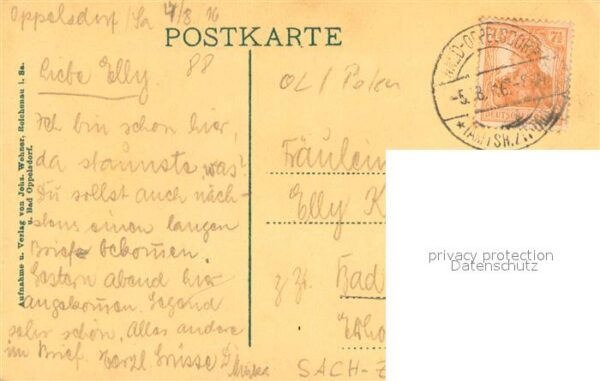 Oppelsdorf/Sa 4/8. 16
POSTKARTE
88
Liebe Elly.
OL / Polen
Ich bin schon hier,
da staunste, was?
Du sollst auch näch-
stens einen langen
Brief bekommen.
Gestern abend hier
angekommen. Gegend
sehr schön. Alles andere
im Brief. Herzl. Grüsse
Fräulein
Elly K
z. Zt. Bad
SACH-
Aufnahme u. Verlag von Johs. Wehner, Reichenau i. Sa.
u. Bad Oppelsdorf.
WALD-OPPELSDORF
-5.8.16.
7½
privacy protection
Datenschutz